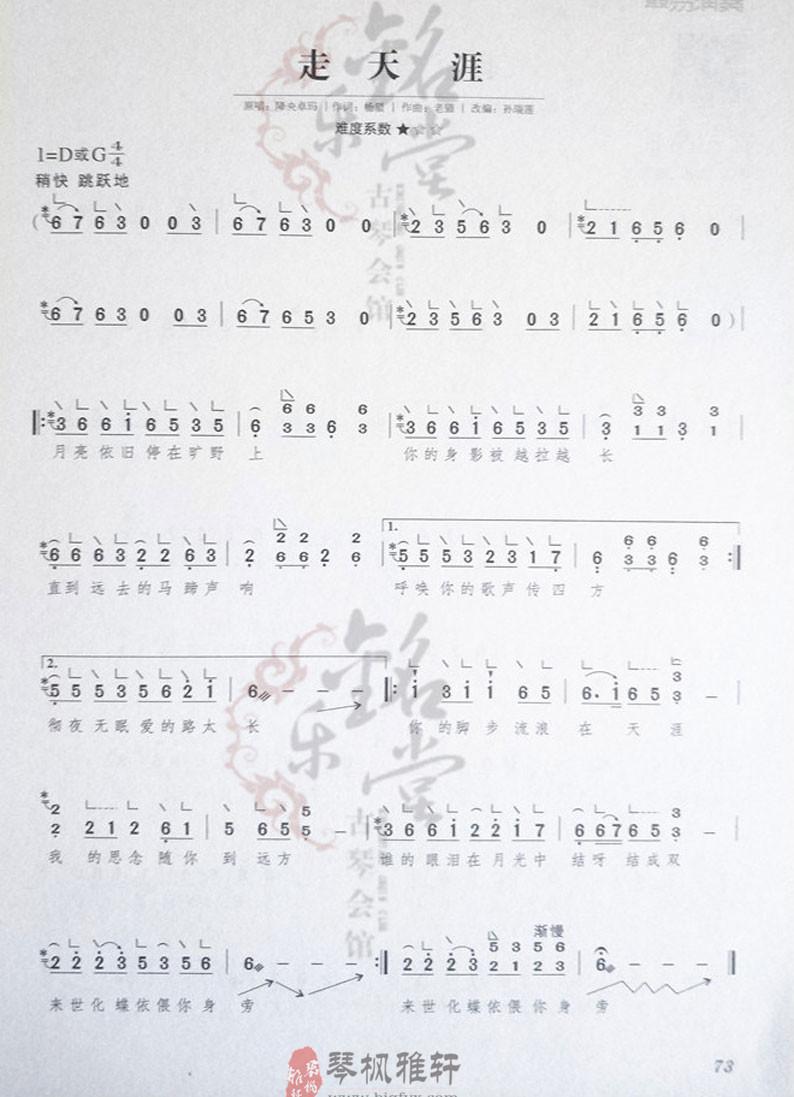 走天涯
原唱：降央卓玛 | 作词：杨 | 作曲：老猫 | 改编：孙晓莲
难度系数 ★☆☆
1=D或G 4/4
稍快 跳跃地
( 6 7 6 3 0 0 3 | 6 7 6 3 0 0 | 2 3 5 6 3 0 | 2 1 6 5 6 0 |
6 7 6 3 0 0 3 | 6 7 6 5 3 0 | 2 3 5 6 3 0 3 | 2 1 6 5 6 0 ) |
3 6 6 1 6 5 3 5 | 6 3 3 6 3 | 3 6 6 1 6 5 3 5 | 3 1 1 3 1 |
月亮依旧停在旷野上 你的身影被越拉越长
6 6 6 3 2 2 6 3 | 2 6 6 2 6 | 1. 5 5 5 3 2 3 1 7 | 6 3 3 6 3 :
直到远去的马蹄声响 呼唤你的歌声传四方
2.
5 5 5 3 5 6 2 1 | 6 — — — : 1 3 1 1 6 5 | 6. 1 6 5 3 —
彻夜无眠爱的路太长 你的脚步流浪在天涯
2 2 1 2 6 1 | 5 6 5 5 — | 3 6 6 1 2 2 1 7 | 6 6 7 6 5 3 —
我的思念随你到远方 谁的眼泪在月光中结呀结成双
渐慢
2 2 2 3 5 3 5 6 | 6 — — — : 2 2 2 3 2 1 2 3 | 6 — — —
来世化蝶依偎你身旁 来世化蝶依偎你身旁
73
铭乐堂
古琴会馆
铭乐堂
古琴会馆
琴枫雅轩